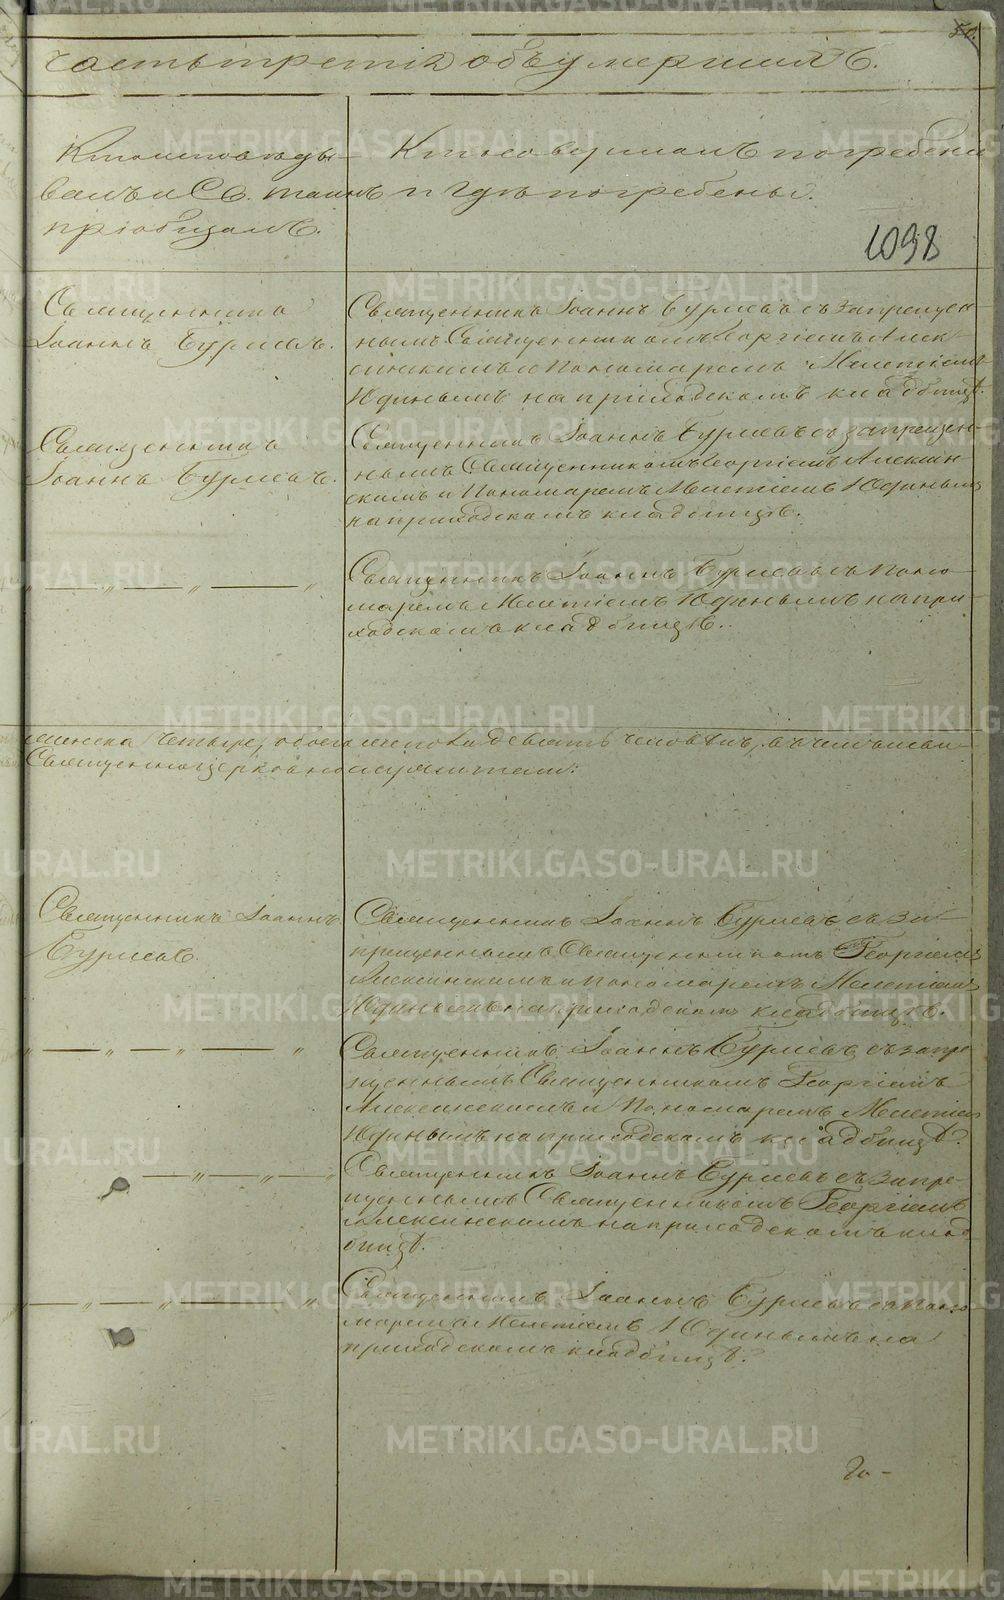 50.
часть третія объ умершихъ.
Кто исповѣды-
валъ и Св. таинъ
пріобщалъ.
Кто совершалъ погребеніе
и гдѣ погребены.
1098
Священникъ
Іоаннъ Бурмевъ.
Священникъ Іоаннъ Бурмевъ съ запрещен
нымъ Священникомъ Георгіемъ Алек
синскимъ и Пономаремъ Мелетіемъ
Юдинымъ на приходскомъ кладбищѣ.
Священникъ
Іоаннъ Бурмевъ.
Священникъ Іоаннъ Бурмевъ съ запрещен-
нымъ Священникомъ Георгіемъ Алексин
скимъ и Пономаремъ Мелетіемъ Юдинымъ
на приходскомъ кладбищѣ.
— „ — „ — „
Священникъ Іоаннъ Бурмевъ съ Поно-
маремъ Мелетіемъ Юдинымъ на при-
ходскомъ кладбищѣ.
женска четыре, обоего пола девять человѣкъ, въ чемъ
Священноцерковнослужители:
Священникъ Іоаннъ
Бурмевъ.
Священникъ Іоаннъ Бурмевъ съ за-
прещеннымъ Священникомъ Георгіемъ
Алексинскимъ и Пономаремъ Мелетіемъ
Юдинымъ на приходскомъ кладбищѣ.
— „ — „ — „
Священникъ Іоаннъ Бурмевъ съ запре
щеннымъ Священникомъ Георгіемъ
Алексинскимъ и Пономаремъ Мелетіем
Юдинымъ на приходскомъ кладбищѣ.
— „ — „ — „
Священникъ Іоаннъ Бурмевъ съ запре-
щеннымъ Священникомъ Георгіемъ
Алексинскимъ на приходскомъ клад
бищѣ.
— „ — „ — „
Священникъ Іоаннъ Бурмевъ съ Поно
маремъ Мелетіемъ Юдинымъ на
приходскомъ кладбищѣ.
METRIKI.GASO-URAL.RU